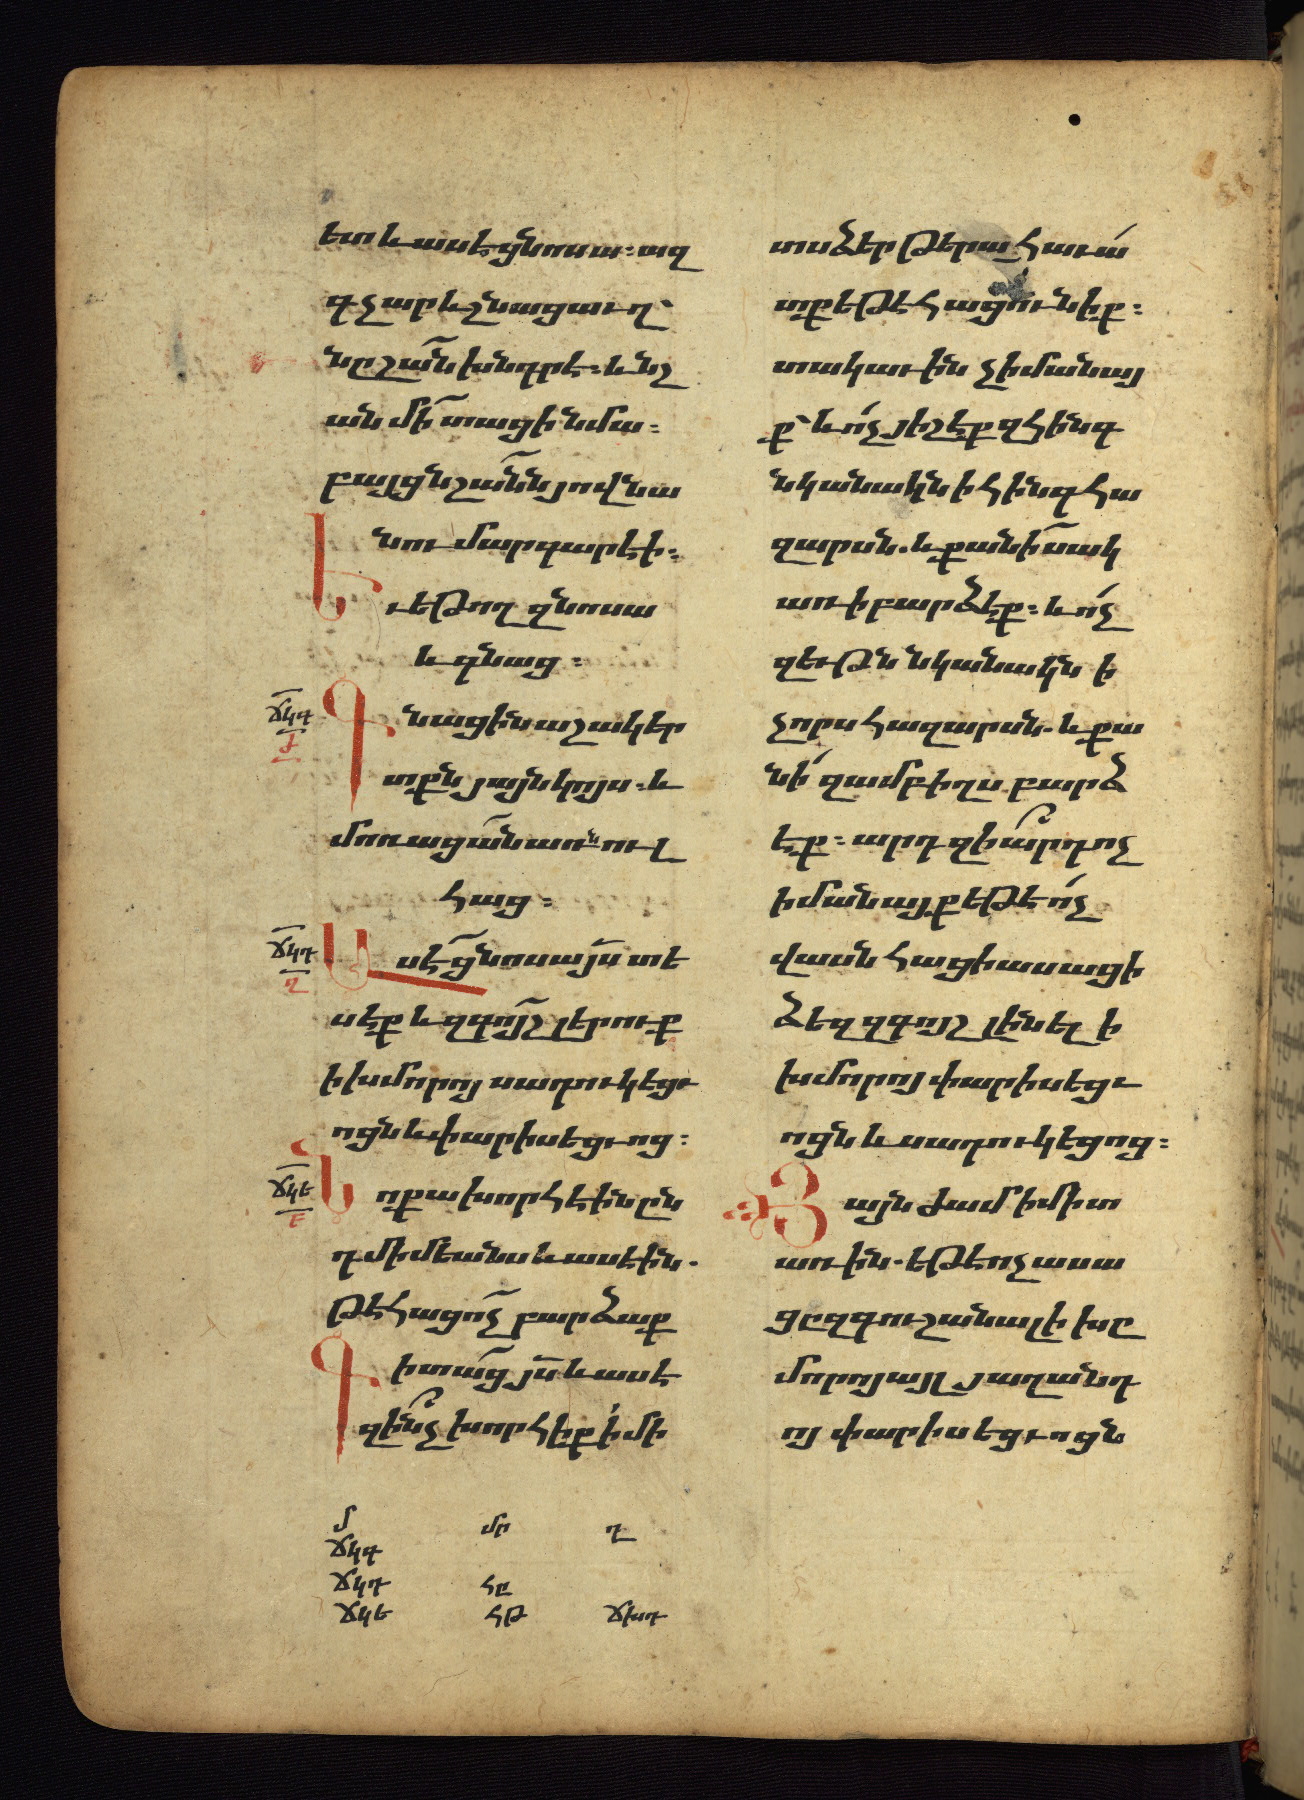 ետ և ասէ ցնոսա։ ազ
գ չար և շնացաւղ՝
նըշա՟ն խնդրէ։ և նշ
ան մի՛ տացի նմա։
բայց նշա՟նն յովնա
նու մարգարէի։
Եւ եթող զնոսա
և գնաց։
ՃԿԳ
Ժ
Գնացին աշակեր
տքն յայնկոյս. և
մոռացա՟ն առնուլ
հաց։
ՃԿԴ
Ղ
Ասէ ցնոսա յ՟ս տե
սէք և զգոյշ լերուք
ի խմորոյ սադուկեցւ
ոցն և փարիսեցւոց։
ՃԿԵ
Ե
Նոքա խորհէին ըն
դ միմեանս և ասէին.
թէ հաց ո՛չ բարձաք
Գիտա՟ց յ՟ս և ասէ
զի՟նչ խորհիք ի մի
տս ձեր թերա հաւա՛
տք եթէ հաց ունիք։
տակաւին չիմանայ
ք՝ և ո՛չ յիշէք զհինգ
նկանակն ի հինգ հա
զարսն. և քանի՛ սակ
առի բարձէք։ և ո՛չ
զեւթն նկանակն ի
չորս հազարսն. և քա
նի՛ զամբիղս բարձ
էք։ արդ զիա՟րդ ոչ
իմանայք եթէ ո՛չ
վասն հացի ասացի
ձեզ զգոյշ լինել ի
խմորոյ փարիսեցւ
ոցն և սադուկեցոց։
Յայն ժամ ի միտ
առին. եթէ ոչ ասա
ց ըզգուշանալ ի խը
մորոյ այլ յաղանդ
ոյ փարիսեցւոցն
Մ ՄՐ Ղ
ՃԿԳ
ՃԿԴ ՀԸ
ՃԿԵ ՀԹ ՃԽԴ